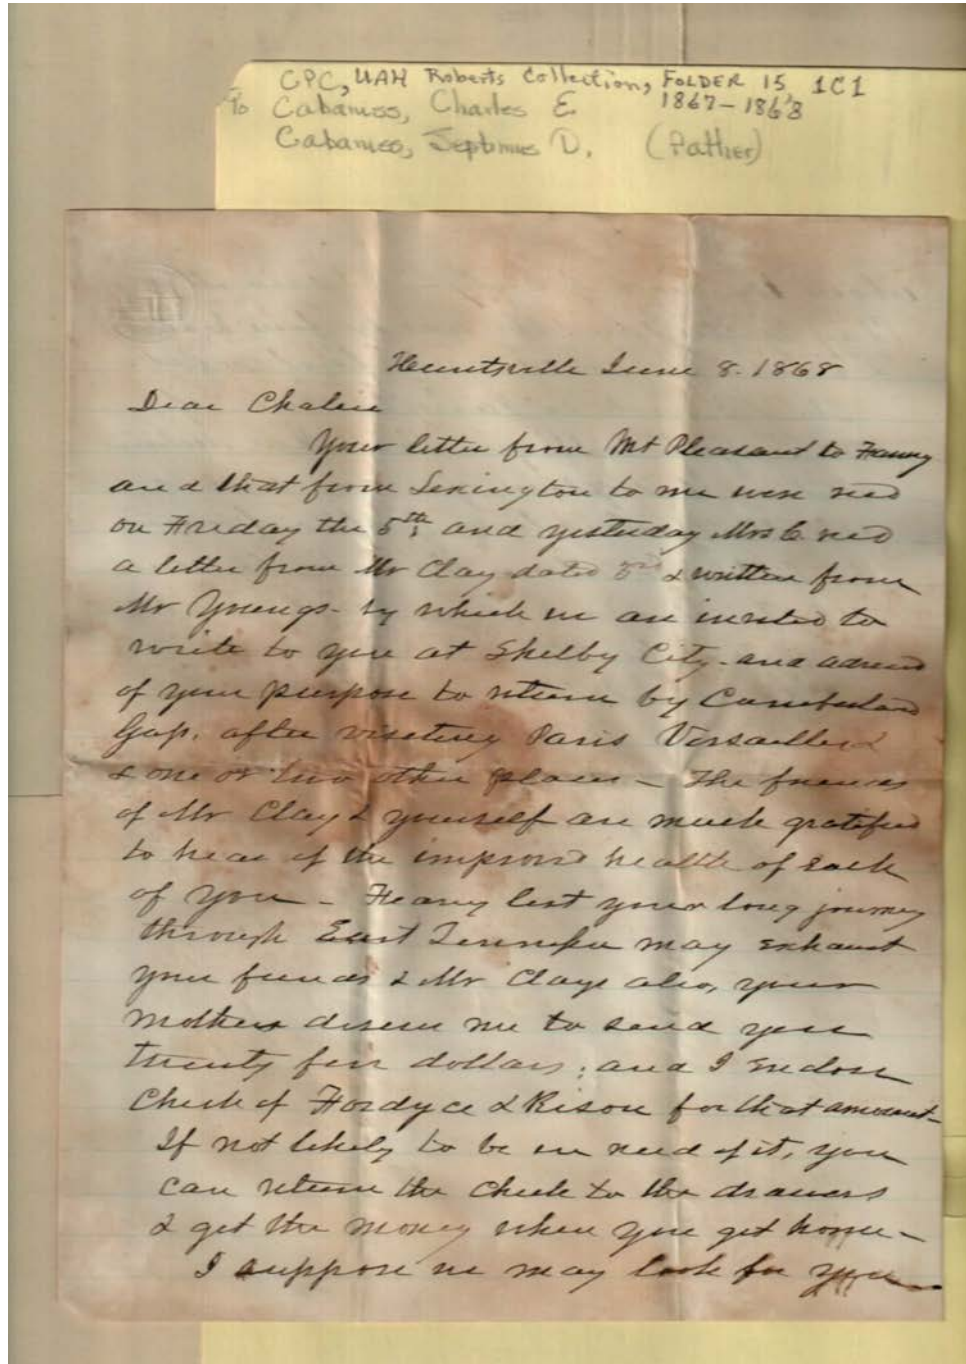 CPC, UAH Roberts Collection, FOLDER 15 1C1
To Cabaniss, Charles E. 1867-1868
Cabaniss, Septimus D. (Father)
Huntsville June 8. 1868
Dear Charlie
Your letter from Mt Pleasant to Fanny
and that from Lexington to me were recd
on Friday the 5th and yesterday Mrs C. recd
a letter from Mr Clay dated & written from
Mr Youngs - by which we are invited to
write to you at Shelby City - and advised
of your purpose to return by Cumberland
Gap, after visiting Paris Versailles &
& one or two other places - The friends
of Mr Clay & yourself are much gratified
to hear of the improved health of each
of you - Fearing lest your long journey
through East Tennessee may exhaust
your funds & Mr Clays also, your
mother desires me to send you
twenty five dollars; and I enclose
Check of Fordyce & Rison for that amount -
If not likely to be in need of it, you
can return the check to the drawers
& get the money when you get home -
I suppose we may look for you